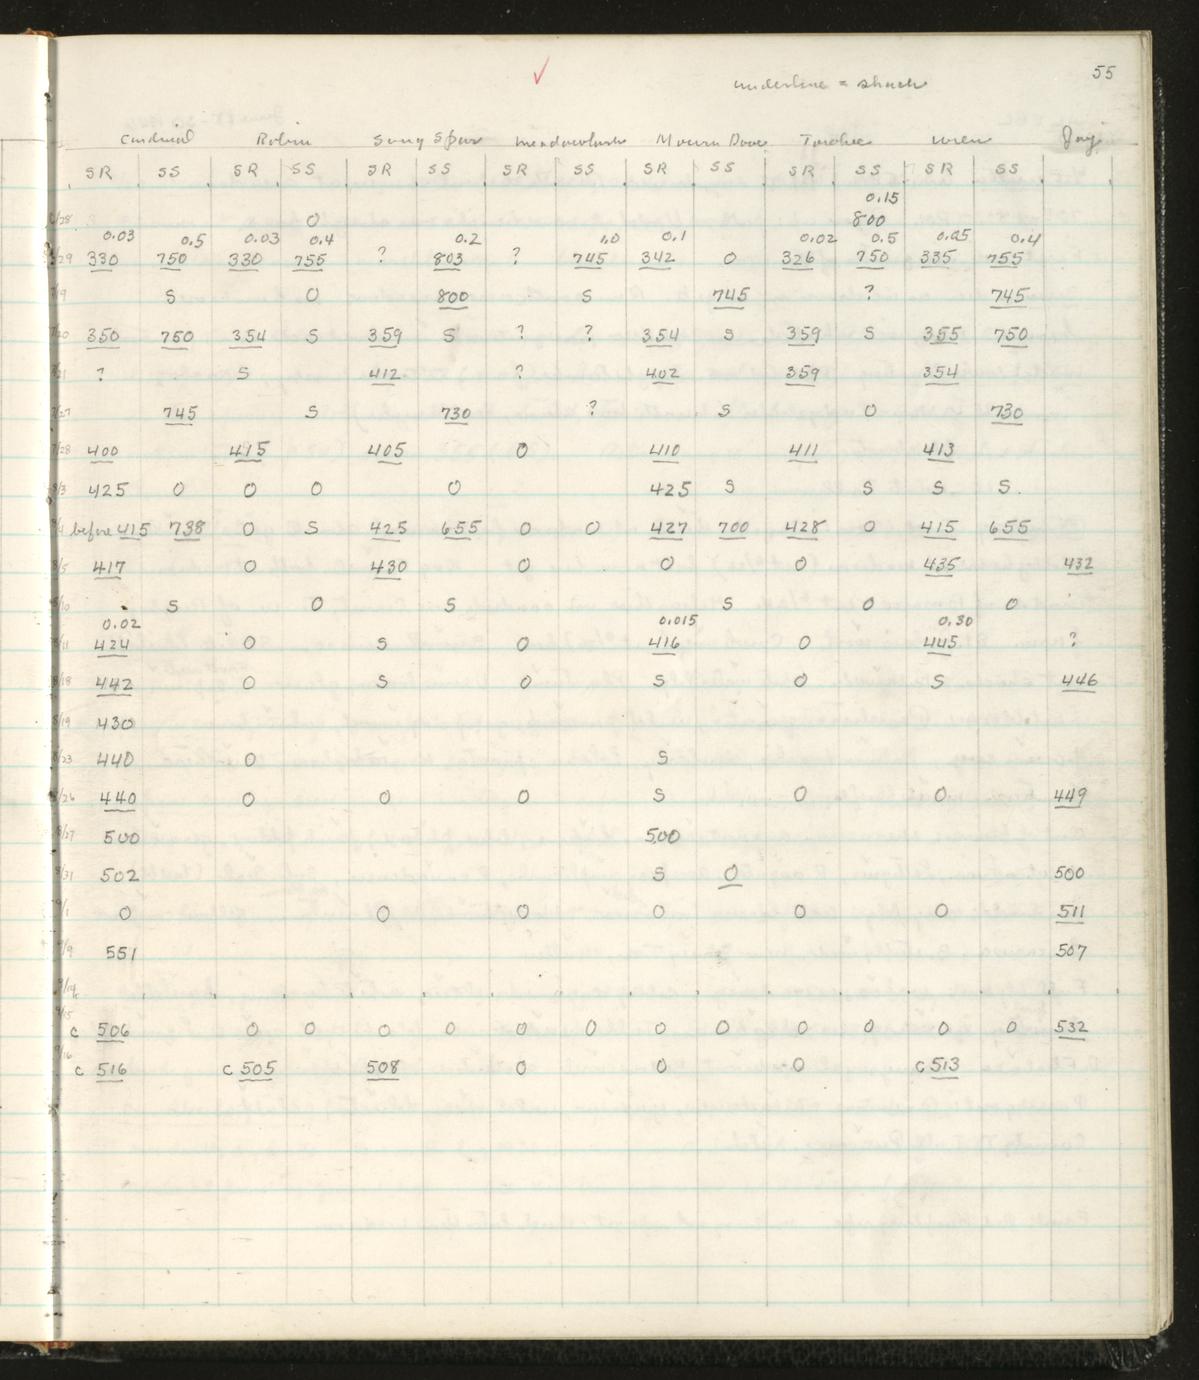 55
underline = shack
Cardinal Robin Song Spar Meadowlark Mourn Dove Towhee wren Jay
SR SS SR SS SR SS SR SS SR SS SR SS SR SS
0.15
/28 0 800
0.03 0.5 0.03 0.4 0.2 1.0 0.1 0.02 0.5 0.05 0.4
/29 330 750 330 755 ? 803 ? 745 342 0 326 750 335 755
/19 S 0 800 S 745 ? 745
7/20 350 750 354 S 359 S ? ? 354 S 359 S 355 750
/21 ? S 412 ? 402 359 354
7/27 745 S 730 ? S 0 730
7/28 400 415 405 0 410 411 413
8/3 425 0 0 0 0 425 S S S S
8/4 before 415 738 0 S 425 655 0 0 427 700 428 0 415 655
8/5 417 0 430 0 0 0 435 432
8/10 S 0 S S 0 0
0.02 0.015 0.30
8/11 424 0 S 0 416 0 445 ?
8/18 442 0 S 0 S 0 S 446
8/19 430
8/23 440 0 S
8/26 440 0 0 0 S 0 0 449
8/27 500 500
8/31 502 S 0 500
9/1 0 0 0 0 0 0 511
9/9 551 507
9/14
9/15
c 506 0 0 0 0 0 0 0 0 0 0 0 0 532
9/16
c 516 c 505 508 0 0 0 c 513